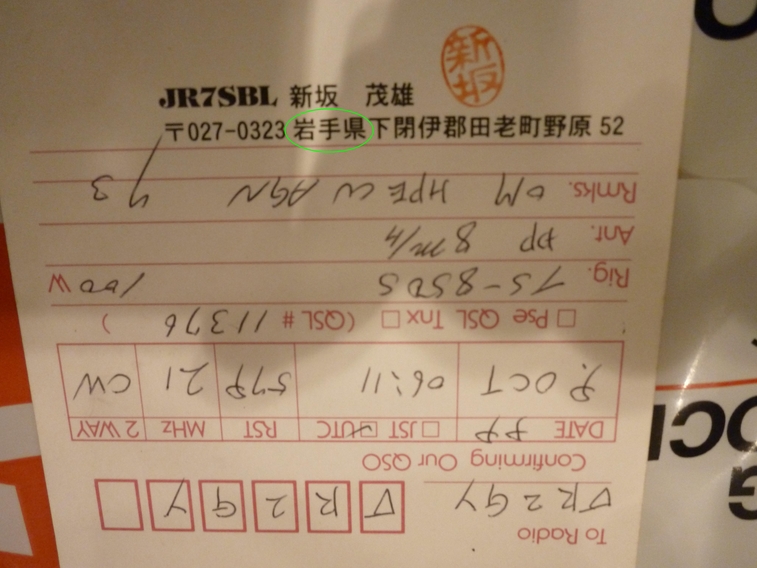 新坂
JR7SBL 新坂 茂雄
〒027-0323 岩手県下閉伊郡田老町野原 52
To Radio
VR2GY V R 2 G Y
Confirming Our QSO
DATE 99 □JST □UTC RST MHz 2 WAY
9. OCT 06:11 579 21 CW
□ Pse QSL Tnx □ (QSL # 11376 )
Rig. TS-850S 100 W
Ant. DP 8m/H
Rmks. OM HPE CU AGN 73